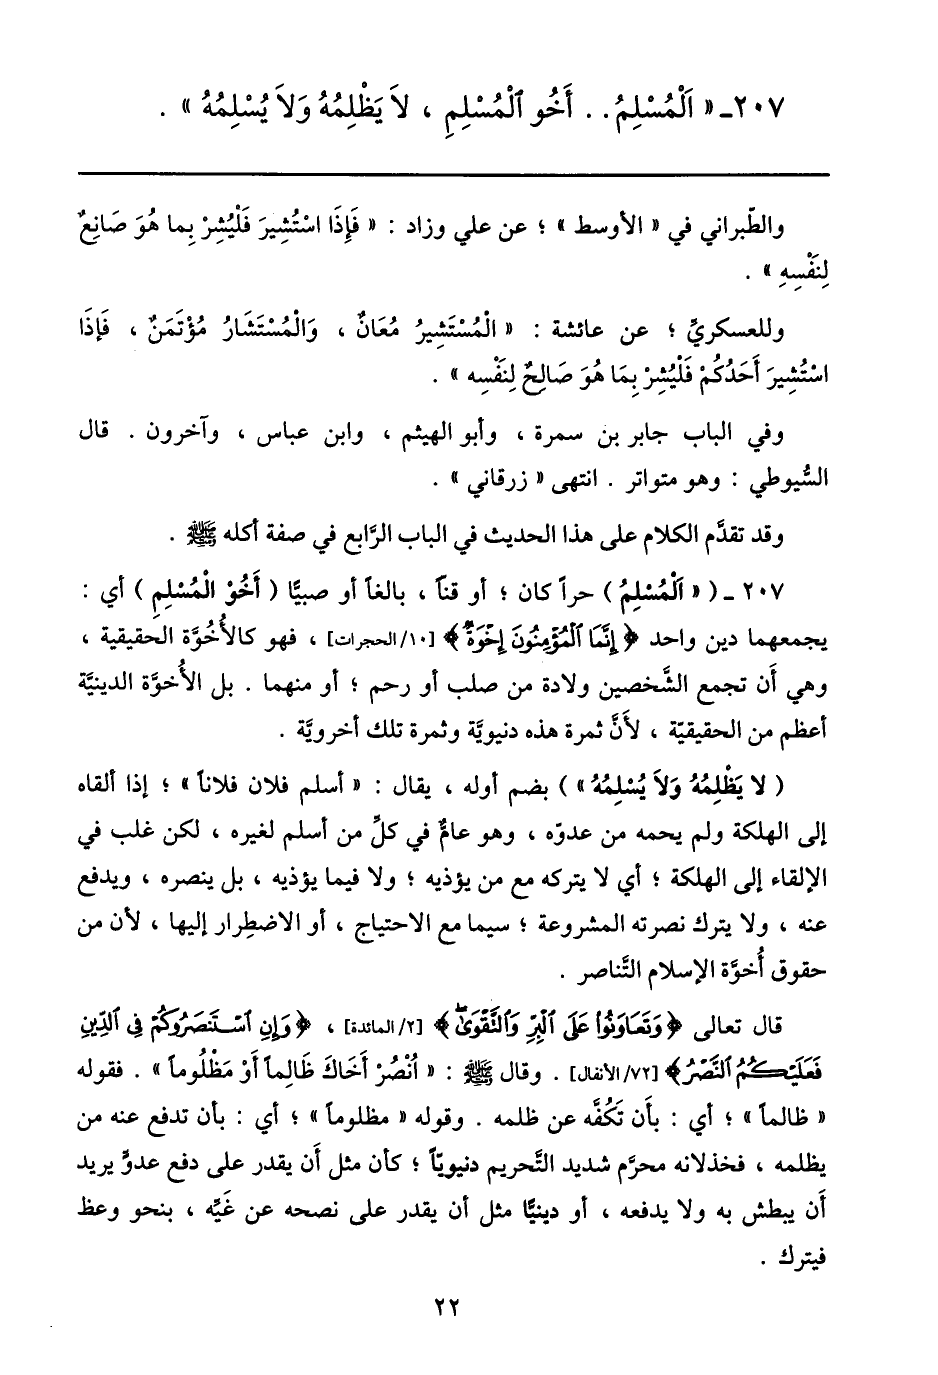 ٢٠٧ـ « اَلْمُسْلِمُ . . أَخُو ٱلْمُسْلِمِ ، لاَ يَظْلِمُهُ وَلاَ يُسْلِمُهُ » .
والطّبراني في « الأوسط » ؛ عن علي وزاد : « فَإِذَا اسْتُشِيرَ فَلْيُشِرْ بِما هُوَ صَانِعٌ
لِنَفْسِهِ » .
وللعسكريِّ ؛ عن عائشة : « الْمُسْتَشِيرُ مُعَانٌ ، وَالْمُسْتَشَارُ مُؤْتَمَنٌ ، فَإِذَا
اسْتُشِيرَ أَحَدُكُمْ فَلْيُشِرْ بِمَا هُوَ صَالِحٌ لِنَفْسِه » .
وفي الباب جابر بن سمرة ، وأبو الهيثم ، وابن عباس ، وآخرون . قال
السُّيوطي : وهو متواتر . انتهى « زرقاني » .
وقد تقدَّم الكلام على هذا الحديث في الباب الرَّابع في صفة أكله ﷺ .
٢٠٧ ـ ( « اَلْمُسْلِمُ ) حراً كان ؛ أو قناً ، بالغاً أو صبيًّا ( أَخُوْ الْمُسْلِمِ ) أي :
يجمعهما دين واحد ﴿ إِنَّمَا ٱلْمُؤْمِنُونَ إِخْوَةٌ ﴾ [١٠/الحجرات] ، فهو كالأُخُوَّة الحقيقية ،
وهي أَن تجمع الشَّخصين ولادة من صلب أو رحم ؛ أو منهما . بل الأُخوَّة الدينيَّة
أعظم من الحقيقيّة ، لأَنَّ ثمرة هذه دنيويَّة وثمرة تلك أخرويَّة .
( لا يَظْلِمُهُ وَلاَ يُسْلِمُهُ » ) بضم أوله ، يقال : « أسلم فلان فلاناً » ؛ إذا ألقاه
إلى الهلكة ولم يحمه من عدوّه ، وهو عامٌّ في كلِّ من أسلم لغيره ، لكن غلب في
الإلقاء إلى الهلكة ؛ أي لا يتركه مع من يؤذيه ؛ ولا فيما يؤذيه ، بل ينصره ، ويدفع
عنه ، ولا يترك نصرته المشروعة ؛ سيما مع الاحتياج ، أو الاضطِرار إليها ، لأن من
حقوق أُخوَّة الإسلام التَّناصر .
قال تعالى ﴿ وَتَعَاوَنُوا۟ عَلَى ٱلْبِرِّ وَٱلتَّقْوَىٰ ﴾ [٢/المائدة] ، ﴿ وَإِنِ ٱسْتَنصَرُوكُمْ فِى ٱلدِّينِ
فَعَلَيْكُمُ ٱلنَّصْرُ ﴾ [٧٢/الأنفال] . وقال ﷺ : « اُنْصُرْ أَخَاكَ ظَالِماً أَوْ مَظْلُوماً » . فقوله
« ظالماً » ؛ أي : بأَن تَكُفَّه عن ظلمه . وقوله « مظلوماً » ؛ أي : بأن تدفع عنه من
يظلمه ، فخذلانه محرَّم شديد التَّحريم دنيويّاً ؛ كأن مثل أَن يقدر على دفع عدوٍّ يريد
أَن يبطش به ولا يدفعه ، أو دينيًّا مثل أن يقدر على نصحه عن غَيِّه ، بنحو وعظ
فيترك .
٢٢